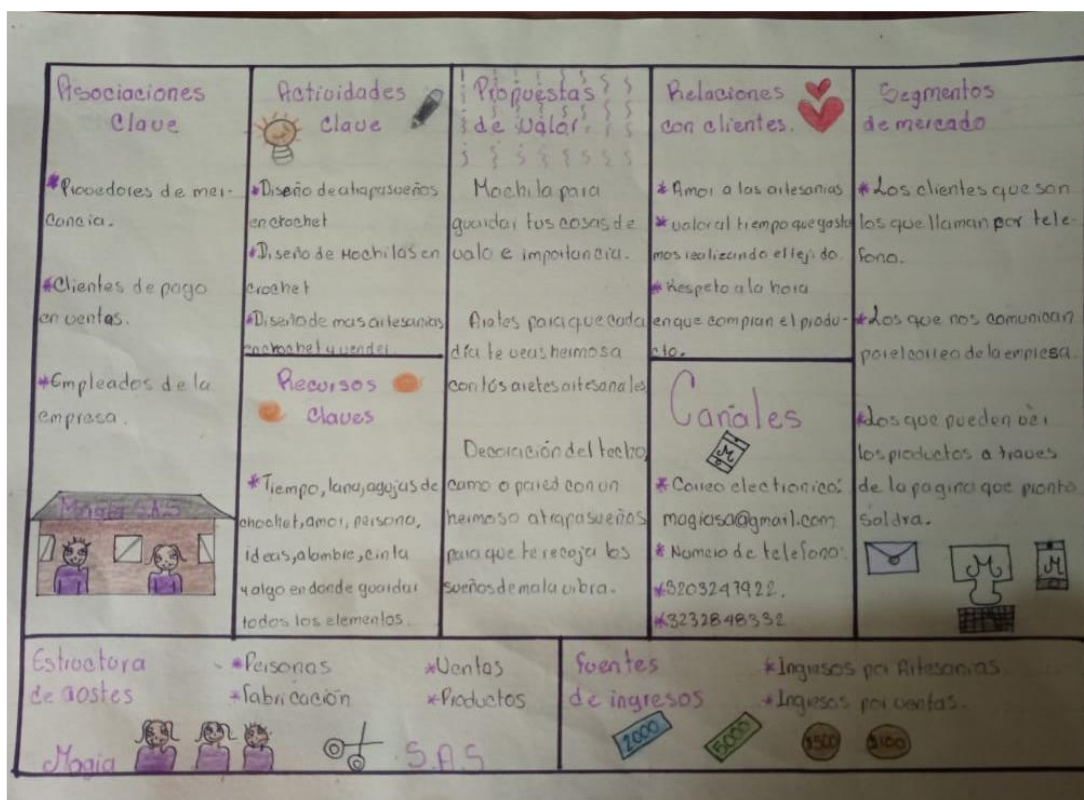 Asociaciones
Clave
*Provedores de mer-
cancia.
*Clientes de pago
en ventas.
*Empleados de la
empresa.
Magia S.A.S
Actividades
Clave
*Diseño de atrapasueños
en crochet
*Diseño de Mochilas en
crochet
*Diseño de mas artesanias
en crochet y vender.
Recursos
Claves
*Tiempo, lana, agujas de
chochet, amor, persona,
ideas, alambre, cinta
y algo en donde guardar
todos los elementos.
Propuestas
de valor.
Mochila para
guardar tus cosas de
valo e importancia.
Aretes para que cada
día te veas hermosa
con los aretes artesanales
Decoración del techo,
camo o pared con un
hermoso atrapasueños
para que te recoja los
sueños de mala vibra.
Relaciones
con clientes.
*Amor a las artesanias
*valor al tiempo que gasta
mos realizando el tejido.
*Respeto a la hora
en que compran el produ-
cto.
Canales
M
*Correo electronico:
magiasa@gmail.com
*Numero de telefono:
*3203247922.
*3232848332
Segmentos
de mercado
*Los clientes que son
los que llaman por tele-
fono.
*Los que nos comunican
por el correo de la empresa.
*Los que pueden ver
los productos a traves
de la pagina que pronto
saldra.
M
M
Estructura
de costes
*Personas
*Fabricación
*Ventas
*Productos
Magia
S.A.S
Fuentes
de ingresos
*Ingresos por Artesanias
*Ingresos por ventas.
2000
5000
$500
$100